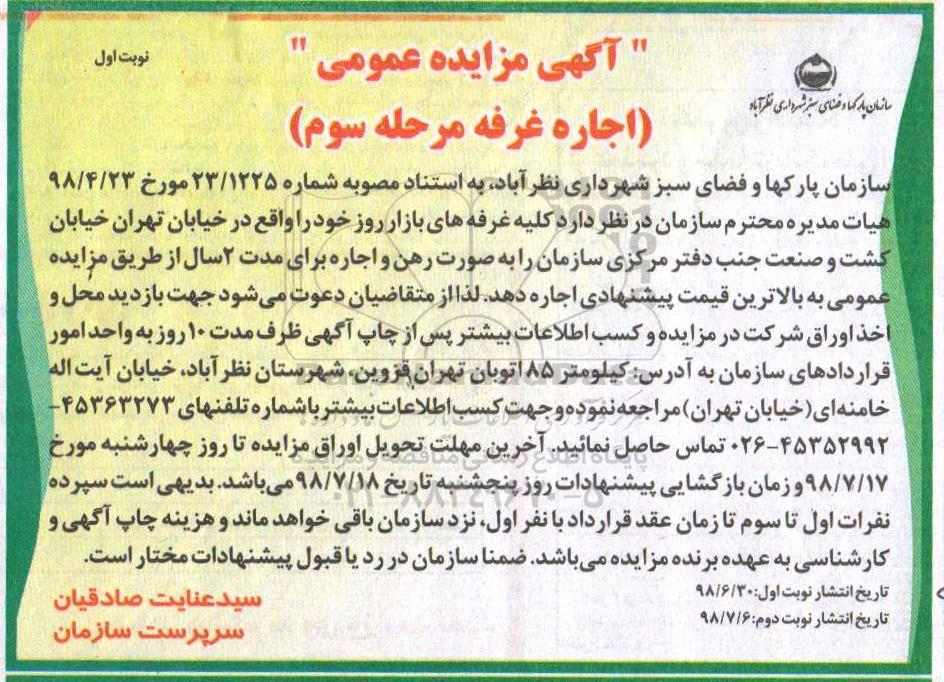 " آگهی مزایده عمومی "
نوبت اول
سازمان پارکها و فضای سبز شهرداری نظرآباد
(اجاره غرفه مرحله سوم)
سازمان پارکها و فضای سبز شهرداری نظرآباد، به استناد مصوبه شماره ۲۳/۱۲۲۵ مورخ ۹۸/۴/۲۳
هیات مدیره محترم سازمان در نظر دارد کلیه غرفه های بازار روز خود را واقع در خیابان تهران خیابان
کشت و صنعت جنب دفتر مرکزی سازمان را به صورت رهن و اجاره برای مدت ۲سال از طریق مزایده
عمومی به بالاترین قیمت پیشنهادی اجاره دهد. لذا از متقاضیان دعوت می‌شود جهت بازدید محل و
اخذ اوراق شرکت در مزایده و کسب اطلاعات بیشتر پس از چاپ آگهی ظرف مدت ۱۰ روز به واحد امور
قراردادهای سازمان به آدرس: کیلومتر ۸۵ اتوبان تهران قزوین، شهرستان نظرآباد، خیابان آیت اله
خامنه‌ای (خیابان تهران) مراجعه نموده و جهت کسب اطلاعات بیشتر با شماره تلفنهای ۴۵۳۶۳۲۷۳-
۰۲۶-۴۵۳۵۲۹۹۲ تماس حاصل نمائید. آخرین مهلت تحویل اوراق مزایده تا روز چهارشنبه مورخ
۹۸/۷/۱۷ و زمان بازگشایی پیشنهادات روز پنجشنبه تاریخ ۹۸/۷/۱۸ می‌باشد. بدیهی است سپرده
نفرات اول تا سوم تا زمان عقد قرارداد با نفر اول، نزد سازمان باقی خواهد ماند و هزینه چاپ آگهی و
کارشناسی به عهده برنده مزایده می‌باشد. ضمنا سازمان در رد یا قبول پیشنهادات مختار است.
تاریخ انتشار نوبت اول: ۹۸/۶/۳۰
تاریخ انتشار نوبت دوم: ۹۸/۷/۶
سیدعنایت صادقیان
سرپرست سازمان